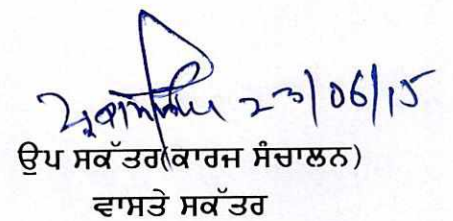 23/06/15
ਉਪ ਸਕੱਤਰ(ਕਾਰਜ ਸੰਚਾਲਨ)
ਵਾਸਤੇ ਸਕੱਤਰ